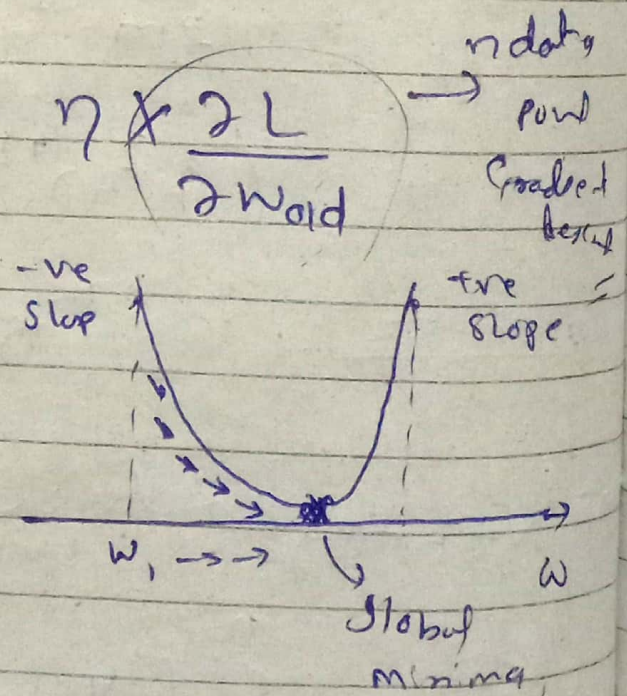 η × ∂L
∂Wold
n data
point
Gradient
descent
-ve
slop
+ve
slope
W₁ → →
ω
Global
minima